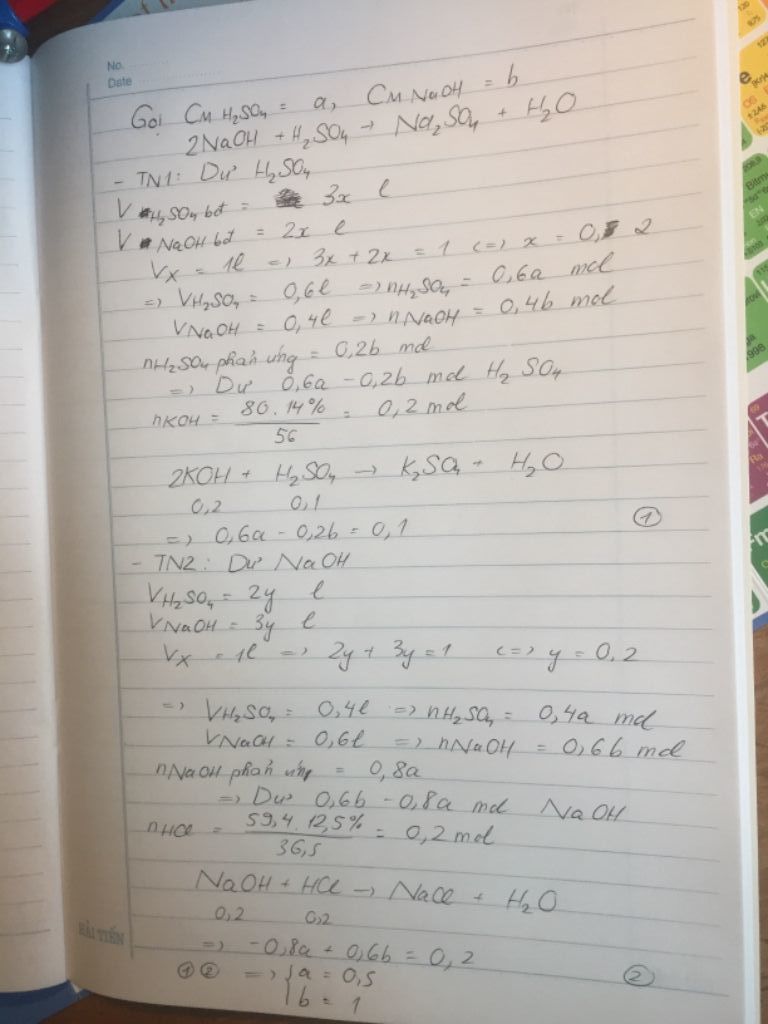 No.
Date
Gọi CM H2SO4 = a, CM NaOH = b
2NaOH + H2SO4 → Na2SO4 + H2O
- TN1: Dư H2SO4
V H2SO4 bđ = 3x l
V NaOH bđ = 2x l
VX = 1l => 3x + 2x = 1 <=> x = 0,2
=> VH2SO4 = 0,6l => nH2SO4 = 0,6a mol
VNaOH = 0,4l => nNaOH = 0,4b mol
nH2SO4 phản ứng = 0,2b mol
=> Dư 0,6a - 0,2b mol H2SO4
nKOH = 80.14% / 56 = 0,2 mol
2KOH + H2SO4 → K2SO4 + H2O
0,2 0,1
=> 0,6a - 0,2b = 0,1 ①
- TN2: Dư NaOH
VH2SO4 = 2y l
VNaOH = 3y l
VX = 1l => 2y + 3y = 1 <=> y = 0,2
=> VH2SO4 = 0,4l => nH2SO4 = 0,4a mol
VNaOH = 0,6l => nNaOH = 0,6b mol
nNaOH phản ứng = 0,8a
=> Dư 0,6b - 0,8a mol NaOH
nHCl = 59,4.12,5% / 36,5 = 0,2 mol
NaOH + HCl → NaCl + H2O
0,2 0,2
=> -0,8a + 0,6b = 0,2 ②
①② => { a = 0,5
b = 1
HẢI TIẾN